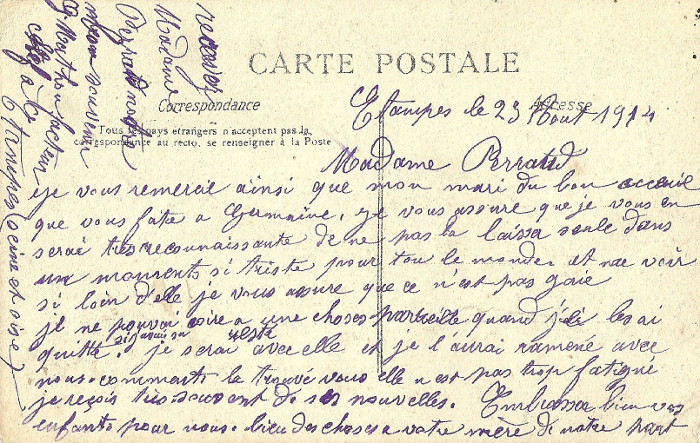 CARTE POSTALE
Correspondance
Adresse
Tous les pays etrangers n'acceptent pas la
correspondance au recto, se renseigner à la Poste
Etampes le 23 Aout 1914
Madame Perraud
je vous remercie ainsi que mon mari du bon acceuil
que vous faite a Germaine, je vous assure que je vous en
serai très reconnaissante de ne pas la laissa seule dans
un moments si triste pour tou le monde et me voir
si loin d'elle je vous assure que ce n'est pas gaie
je ne pouvai croire a une choses pareille quand je les ai
quitté. si j'avais su je serai reste avec elle et je l'aurai ramené avec
nous. comments la trouvé vous elle n'est pas trop fatigué
je reçois très souvent de ses nouvelles. Embrassé bien vos
enfants pour nous. bien des choses a votre mère de notre part
recevez
Madame
Perraud notre
nouveau
facteur
à
Etampes (seine et oise)